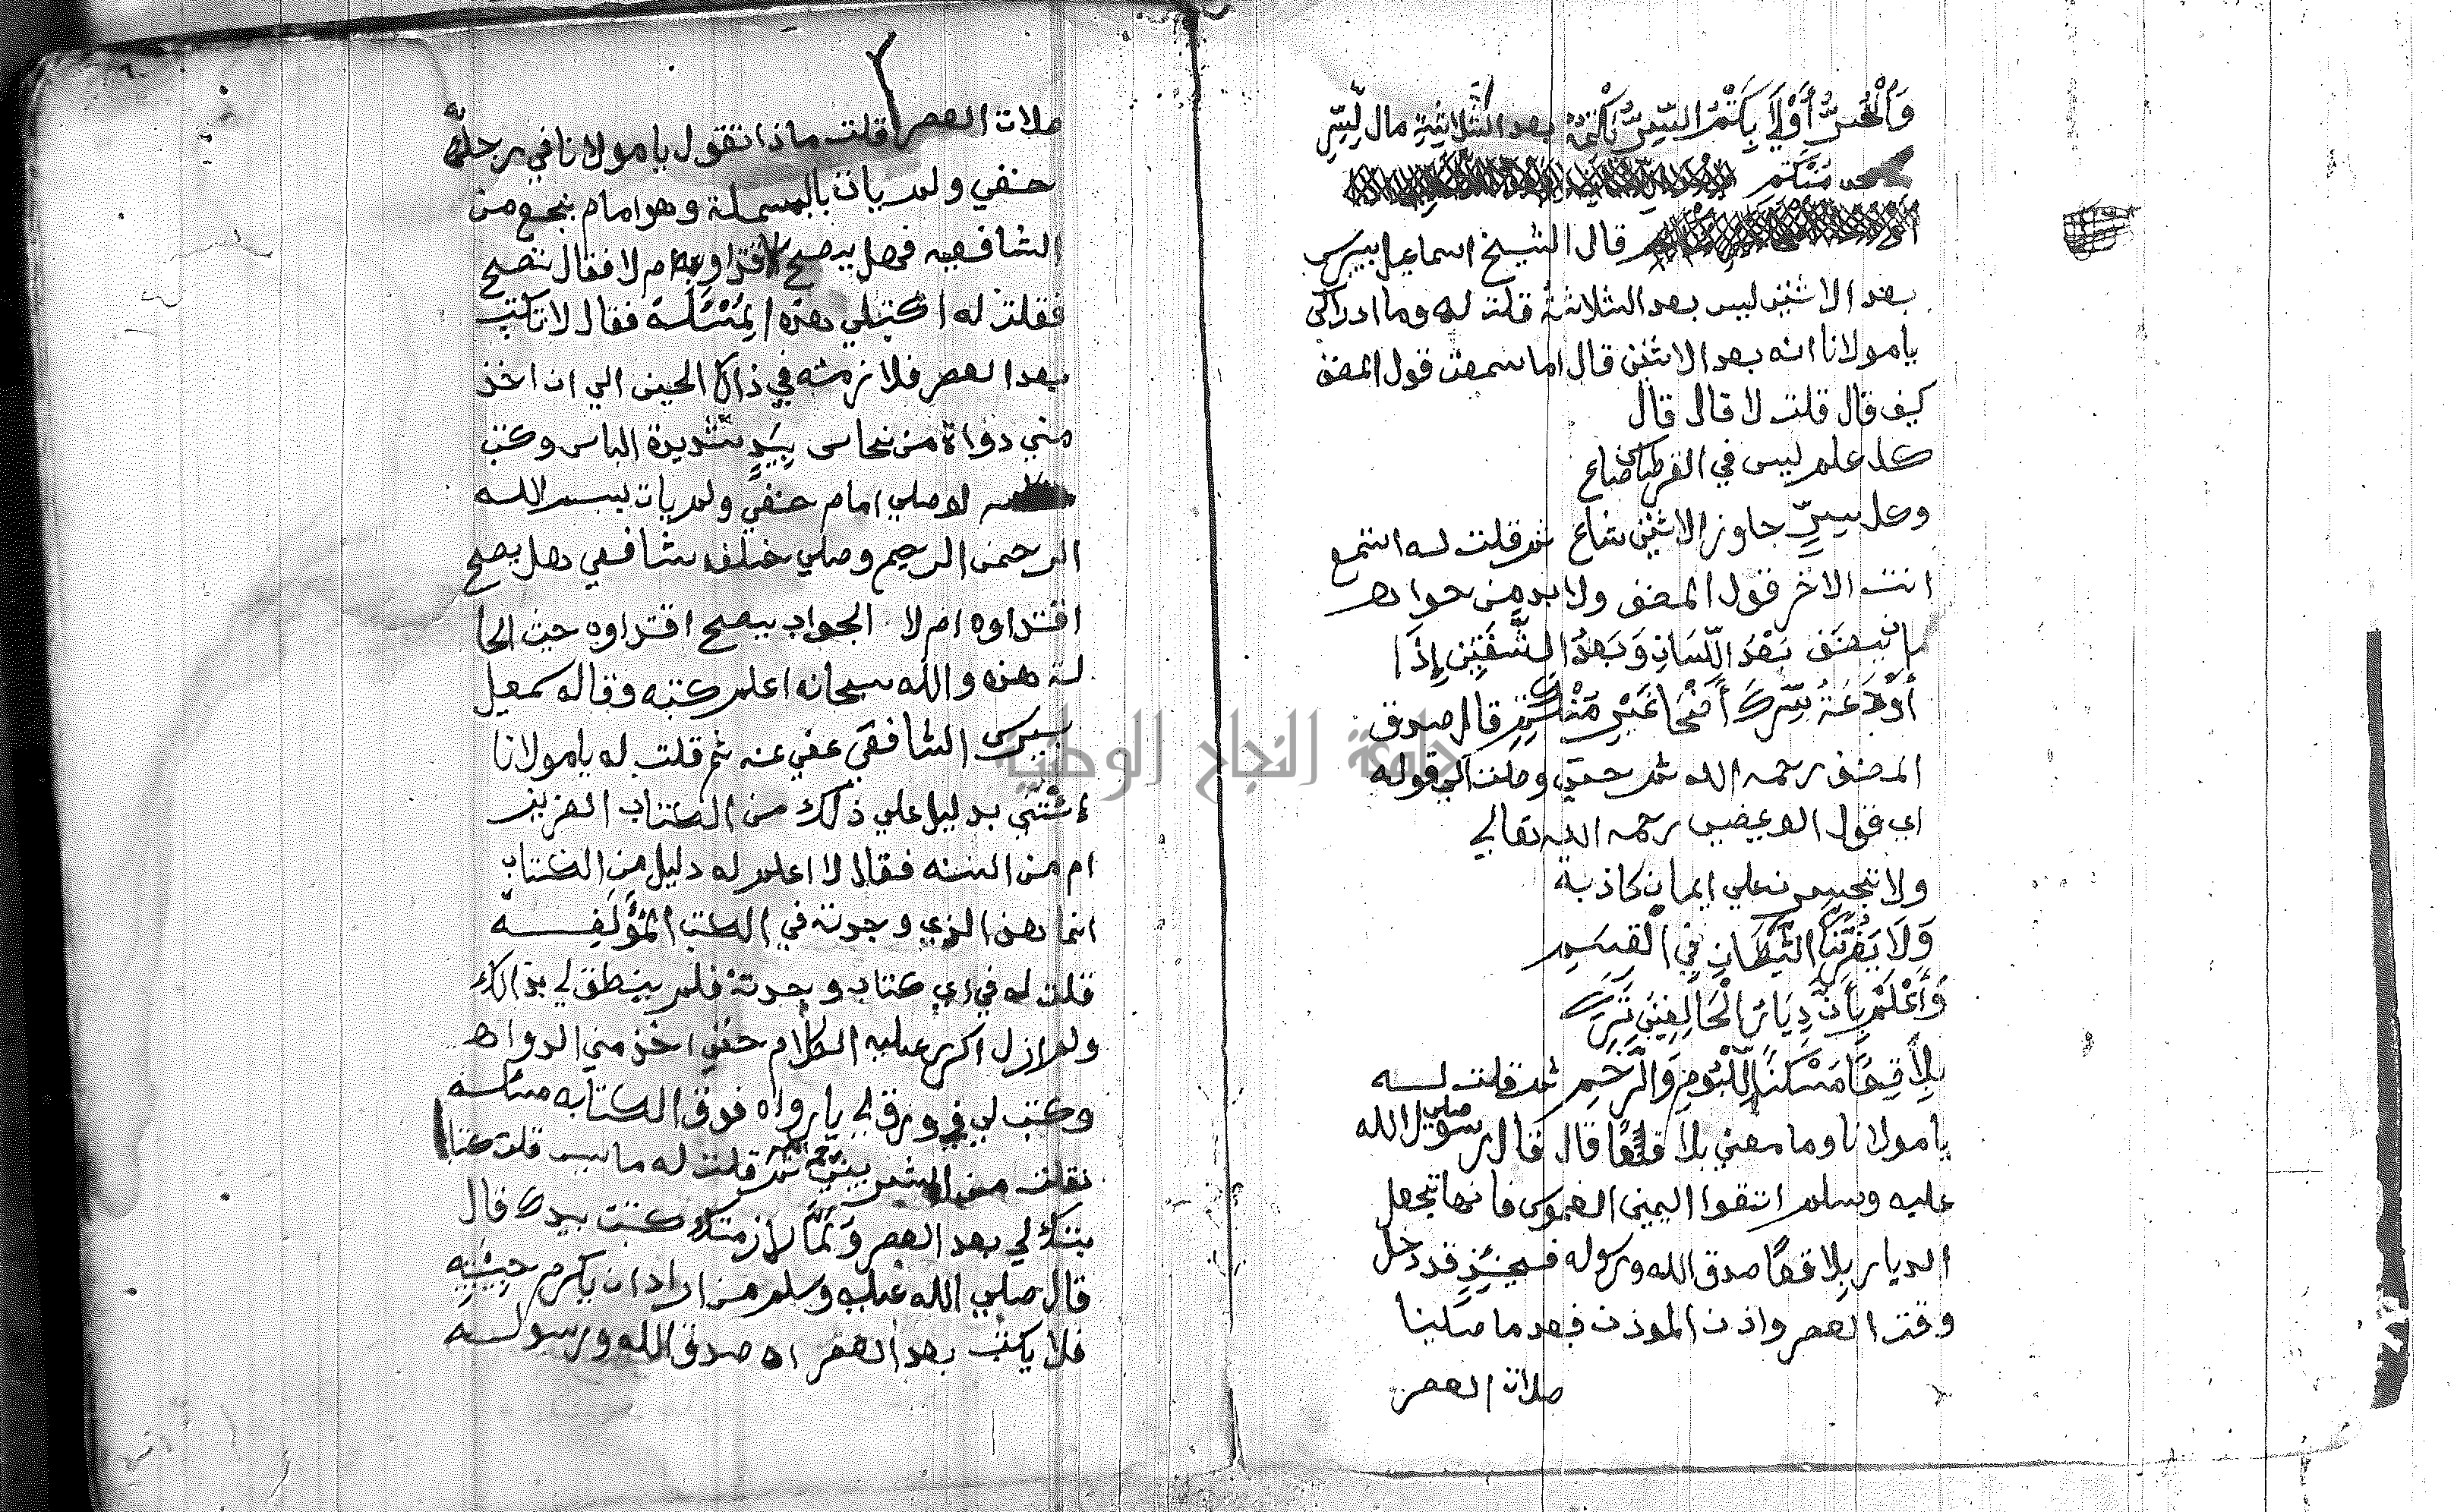 وَالْحُرُّ أَوْلَى بِكَتْمِ السِّرِّ بَعد الثَّلَاثَةِ مال لِسِرِّ
مُنْكَتِمِ
قال الشيخ اسماعيل بيبرس
بعد الاثنين ليس بعد الثلاثة قلت له وما ادراك
يا مولانا انه بعد الاثنين قال اما سمعت قول المصنف
كيف قال قلت لا قال قال
كل علم ليس في القرطاس ضاع
وكل سِرٍّ جاوز الاثنين شاع ثم قلت له استمع
انت الاخر قول المصنف ولا بد من جوابه
بَعْدَ اللِّسَانِ وَبَعدَ الشَّفَتَيْنِ إِذَا
أَوْدَعَتْ سِرَّكَ أَضْحَا غَيْرَ مُنْكَتِمِ قال صدق
المصنف رحمه الله ثم حتي وصلت الي قوله
اي قول البوعيضيي رحمه الله تعالي
ولا تجسرن علي ايمان كاذبة
وَلَا يَغُرَّنَّكَ الشَّيْطَانِ فِي الْقَسَمِ
وَأَعْلَمْ بِأَنَّ دِيَارَ الْحَالِفِينَ تَرَى
بِلَا قِعًا مَسْكَنًا لِلْبُومِ وَالرَّخَمِ ثم قلت له
يا مولانا وما معني بلا قِعًا قال قال رسول الله صلي
عليه وسلم اتقوا اليمين الغموس فانها تجعل
الديار بلا قعًا صدق الله ورسوله فحينئذٍ قد دخل
وقت العصر واذن الموذن فبعد ما صلينا
صلات العصر
صلات العصر قلت ماذا تقول يا مولانا في رجل
حنفي ولم يات بالبسملة وهو امام بجمع من
الشافعيه فهل يصح اقتداوهم ام لا فقال نصح
فقلت له اكتبلي هذه الْمَسْئَلَةْ فقال لا تاكتب
بعد العصر فلازمته في ذاك الحين الي ان اخذ
مني دواة من نحاس بِيَدٍ شديدة الباس وكتب
لو صلي امام حنفي ولم يات ببسم الله
الرحمن الرحيم وصلي خلفه شافعي هل يصح
اقتداوه ام لا الجواب يصح اقتداوه حيث الحا
لة هذه والله سبحانه اعلم كتبه وقاله سمعيل
بيبرس الشافعي عفي عنه ثم قلت له يا مولانا
إئْتني بدليل علي ذلك من الكتاب العزيز
ام من السنه فقال لا اعلم له دليل من الكتاب
انما هذا الذي وجدته في الكتب الْمُؤَلَفِـــه
قلت له في اي كتاب وجدته فلم ينطق لي بذالك
ولم ازل اكرر عليه الكلام حتي اخذ مني الدواه
وكتب لي في ورقه يا رواه فوق الكتابه مسئله
نقلت من الشربيني ثم قلت له ما سبب قلت كتا
بتك لي بعد العصر وَلَمَّا لازمتك كتبت بيدك قال
قال صلي الله عليه وسلم من اراد ان يكرم حبيبتيه
فلا يكتب بعد العصر اه صدق الله ورسولـــه